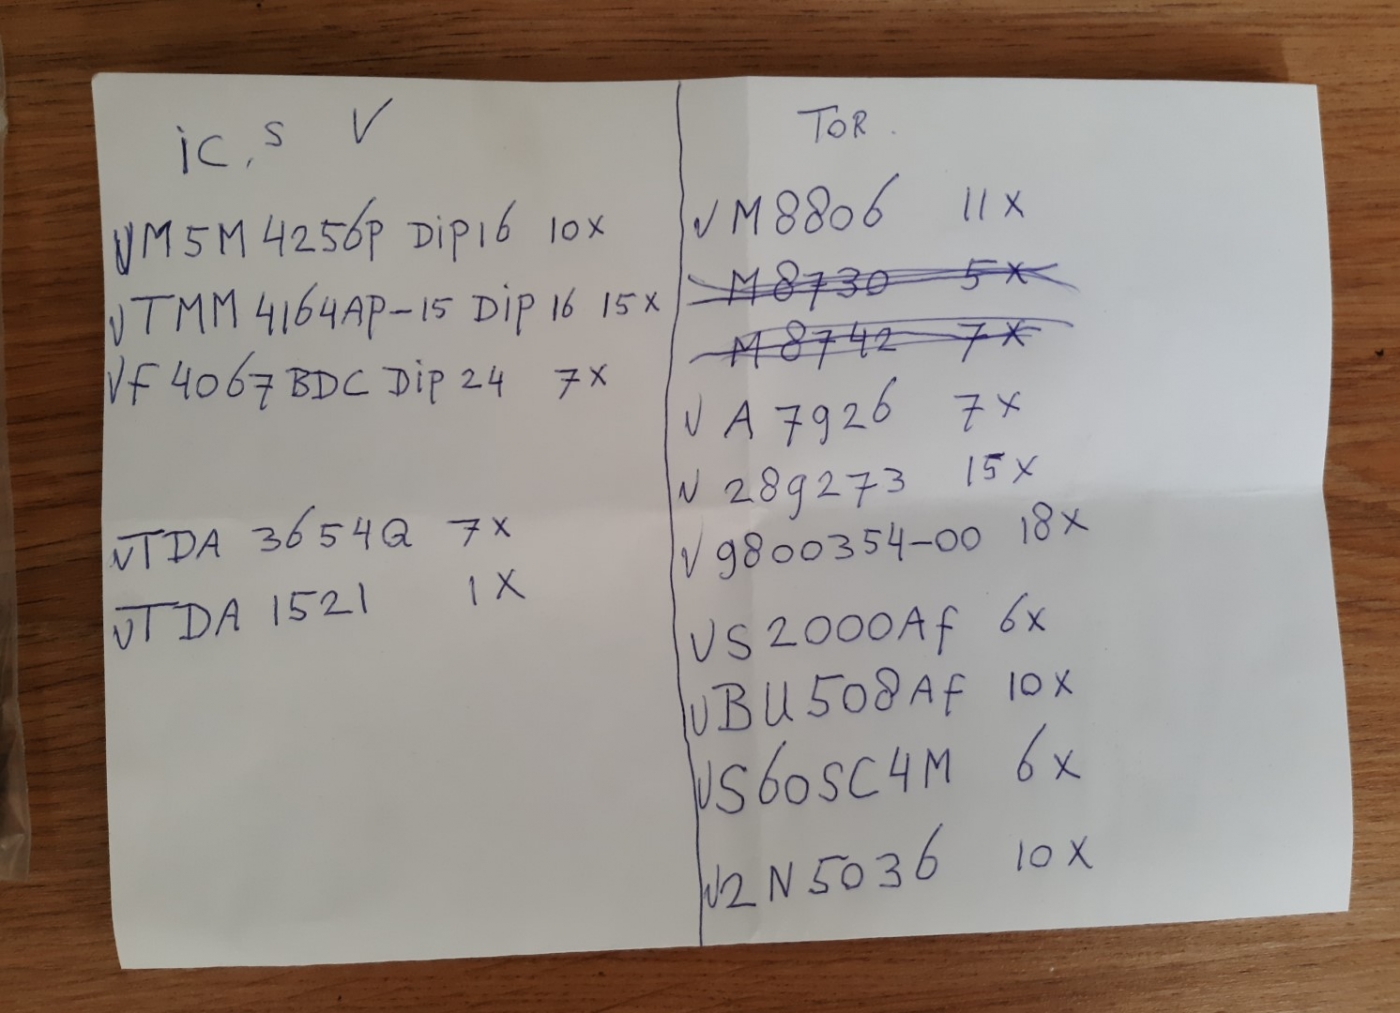 iC,S V
VM5M 4256P DiP16 10x
VTMM 4164AP-15 DiP 16 15x
VF 4067 BDC DiP 24 7x
VTDA 3654Q 7x
VTDA 1521 1x
TOR.
V M8806 11x
M8730 5x
M8742 7x
V A 7926 7x
V 289273 15x
V 9800354-00 18x
VS2000AF 6x
VBU508AF 10x
VS60SC4M 6x
V2N5036 10x